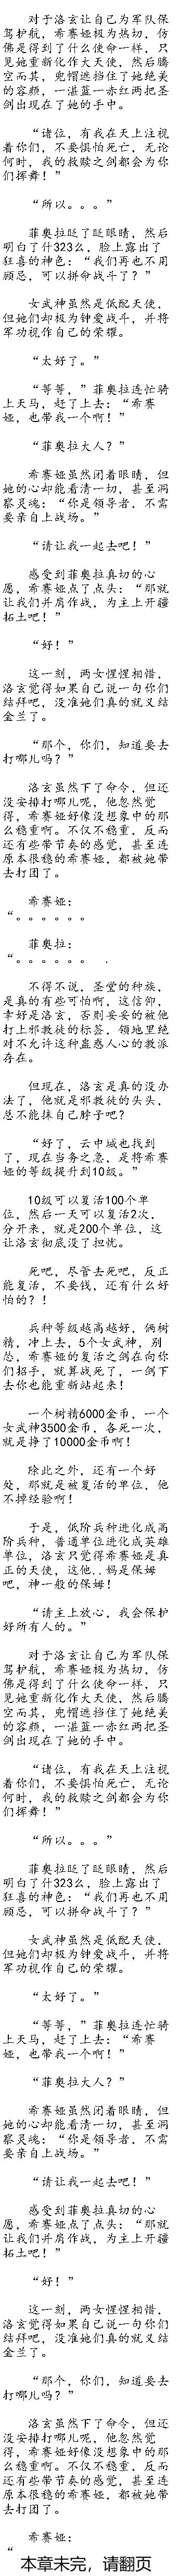 对于洛玄让自己为军队保
驾护航，希赛娅极为热切，仿
佛是得到了什么使命一样，只
见她重新化作大天使，然后腾
空而其，兜帽遮挡住了她绝美
的容颜，一湛蓝一赤红两把圣
剑出现在了她的手中。
“诸位，有我在天上注视
着你们，不要惧怕死亡，无论
何时，我的救赎之剑都会为你
们挥舞！”
“所以。。。”
菲奥拉眨了眨眼睛，然后
明白了什323么，脸上露出了
狂喜的神色：“我们再也不用
顾忌，可以拼命战斗了？”
女武神虽然是低配天使，
但她们却极为钟爱战斗，并将
军功视作自己的荣耀。
“太好了。”
“等等，”菲奥拉连忙骑
上天马，赶了上去：“希赛
娅，也带我一个啊！”
“菲奥拉大人？”
希赛娅虽然闭着眼睛，但
她的心却能看清一切，甚至洞
察灵魂：“你是领导者，不需
要亲自上战场。”
“请让我一起去吧！”
感受到菲奥拉真切的心
愿，希赛娅点了点头：“那就
让我们并肩作战，为主上开疆
拓土吧！”
“好！”
这一刻，两女惺惺相惜，
洛玄觉得如果自己说一句你们
结拜吧，没准她们真的就义结
金兰了。
“那个，你们，知道要去
打哪儿吗？”
洛玄虽然下了命令，但还
没安排打哪儿呢，他忽然觉
得，希赛娅好像没想象中的那
么稳重啊。不仅不稳重，反而
还有些带节奏的感觉，甚至连
原本很稳的希赛娅，都被她带
去打团了。
希赛娅：
“。。。。。。
菲奥拉：
“。。。。。。 .
不得不说，圣堂的种族，
是真的有些可怕啊，这信仰，
幸好是洛玄，否则妥妥的被他
打上邪教徒的标签，领地里绝
对不允许这种蛊惑人心的教派
存在。
但现在，洛玄是真的没办
法了，他就是邪教徒的头头，
总不能抹自己脖子吧？
“好了，云中城也找到
了，现在当务之急，是将希赛
娅的等级提升到10级。”
10级可以复活100个单
位，然后一天可以复活2次，
分开来，就是200个单位，这
让洛玄彻底没了担忧。
死吧，尽管去死吧，反正
能复活，不要钱，还有什么好
怕的？！
兵种等级越高越好，俩树
精，冲上去，5个女武神，别
怂，希赛娅的复活之剑在向你
们招手，就算战死了，一剑下
去你也能重新站起来！
一个树精6000金币，一个
女武神3500金币，各死一次，
就是挣了10000金币啊！
除此之外，还有一个好
处，那就是被复活的单位，他
不掉经验啊！
于是，低阶兵种进化成高
阶兵种，普通单位进化成英雄
单位，洛玄只觉得希赛娅是真
正的天使，这他..妈是保姆
吧，神一般的保姆！
“请主上放心，我会保护
好所有人的。”
对于洛玄让自己为军队保
驾护航，希赛娅极为热切，仿
佛是得到了什么使命一样，只
见她重新化作大天使，然后腾
空而其，兜帽遮挡住了她绝美
的容颜，一湛蓝一赤红两把圣
剑出现在了她的手中。
“诸位，有我在天上注视
着你们，不要惧怕死亡，无论
何时，我的救赎之剑都会为你
们挥舞！”
“所以。。。”
菲奥拉眨了眨眼睛，然后
明白了什323么，脸上露出了
狂喜的神色：“我们再也不用
顾忌，可以拼命战斗了？”
女武神虽然是低配天使，
但她们却极为钟爱战斗，并将
军功视作自己的荣耀。
“太好了。”
“等等，”菲奥拉连忙骑
上天马，赶了上去：“希赛
娅，也带我一个啊！”
“菲奥拉大人？”
希赛娅虽然闭着眼睛，但
她的心却能看清一切，甚至洞
察灵魂：“你是领导者，不需
要亲自上战场。”
“请让我一起去吧！”
感受到菲奥拉真切的心
愿，希赛娅点了点头：“那就
让我们并肩作战，为主上开疆
拓土吧！”
“好！”
这一刻，两女惺惺相惜，
洛玄觉得如果自己说一句你们
结拜吧，没准她们真的就义结
金兰了。
“那个，你们，知道要去
打哪儿吗？”
洛玄虽然下了命令，但还
没安排打哪儿呢，他忽然觉
得，希赛娅好像没想象中的那
么稳重啊。不仅不稳重，反而
还有些带节奏的感觉，甚至连
原本很稳的希赛娅，都被她带
去打团了。
希赛娅：
“
本章未完，请翻页